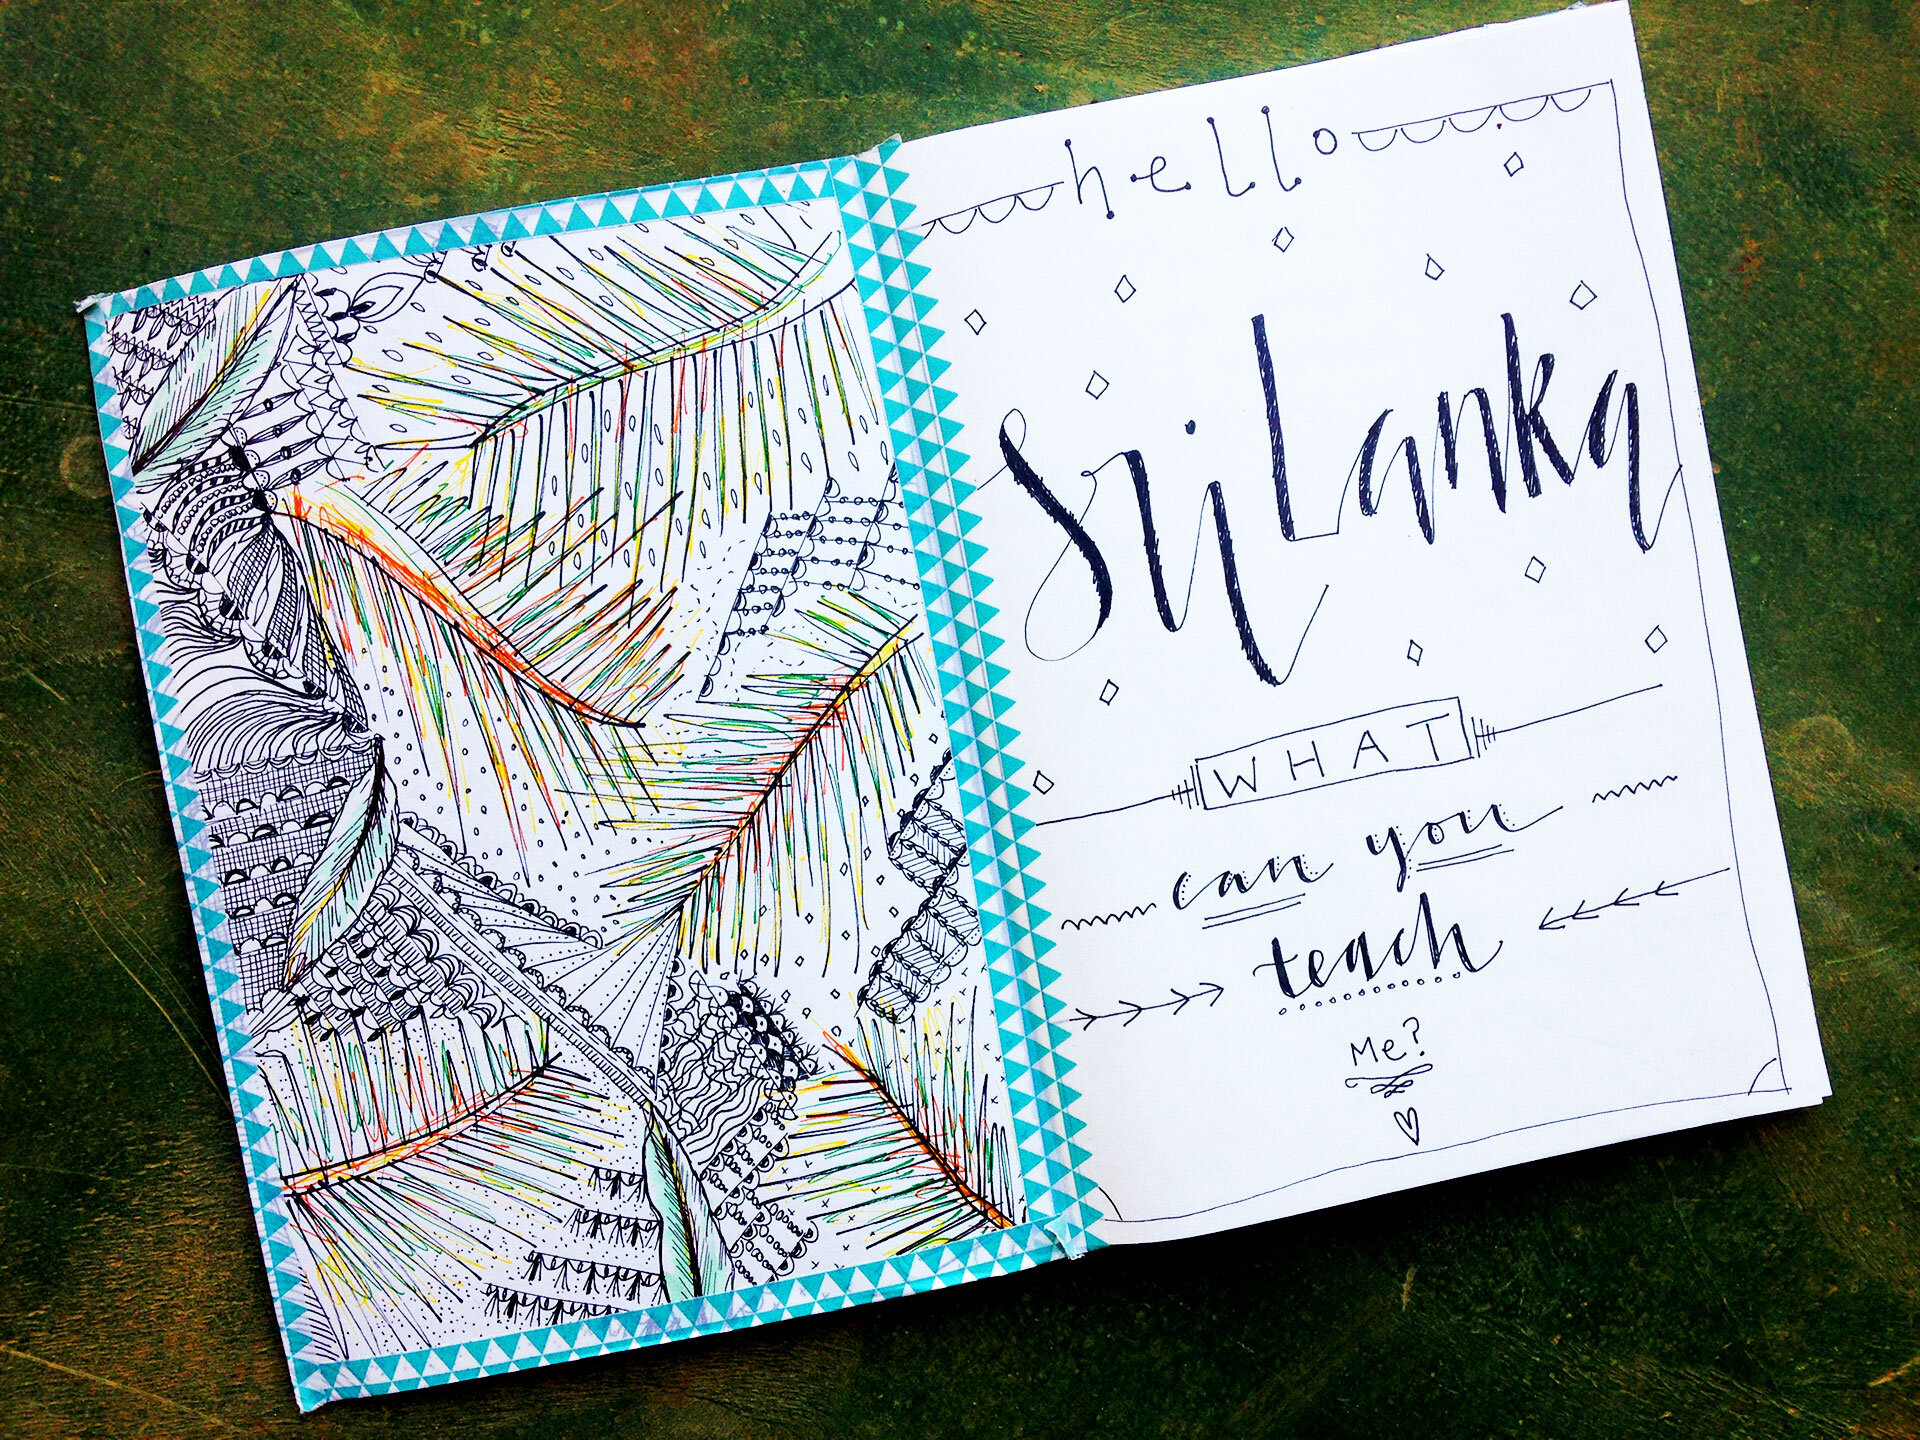 hello
Sri Lanka
WHAT
can you
teach
Me?